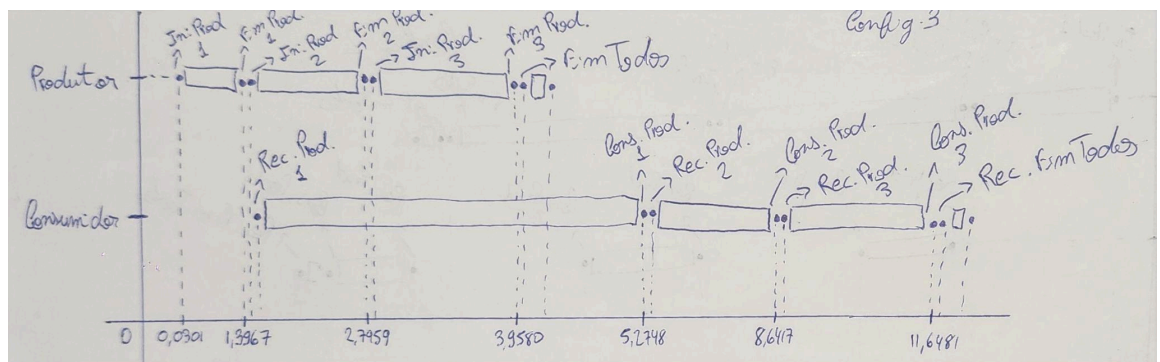 Config. 3
Ini. Prod. 1
Fim Prod. 1
Ini. Prod 2
Fim Prod. 2
Ini. Prod. 3
Fim Prod. 3
Fim Todos
Produtor
Rec. Prod. 1
Cons. Prod. 1
Rec. Prod. 2
Cons. Prod. 2
Rec. Prod. 3
Cons. Prod. 3
Rec. Fim Todos
Consumidor
0 0,0301 1,3967 2,7959 3,9580 5,2748 8,6417 11,6481